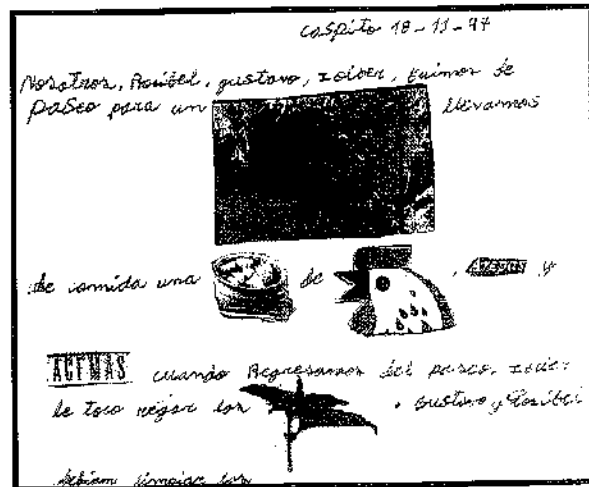 Caspito 18-11-97
Nosotros, Rosibel, gustavo, , fuimos de
paseo para un llevamos
de comida una de , y
ACEMAS cuando Regresamos del paseo,
le toco regar los . Gustavo y Rosibel
debian limpiar los